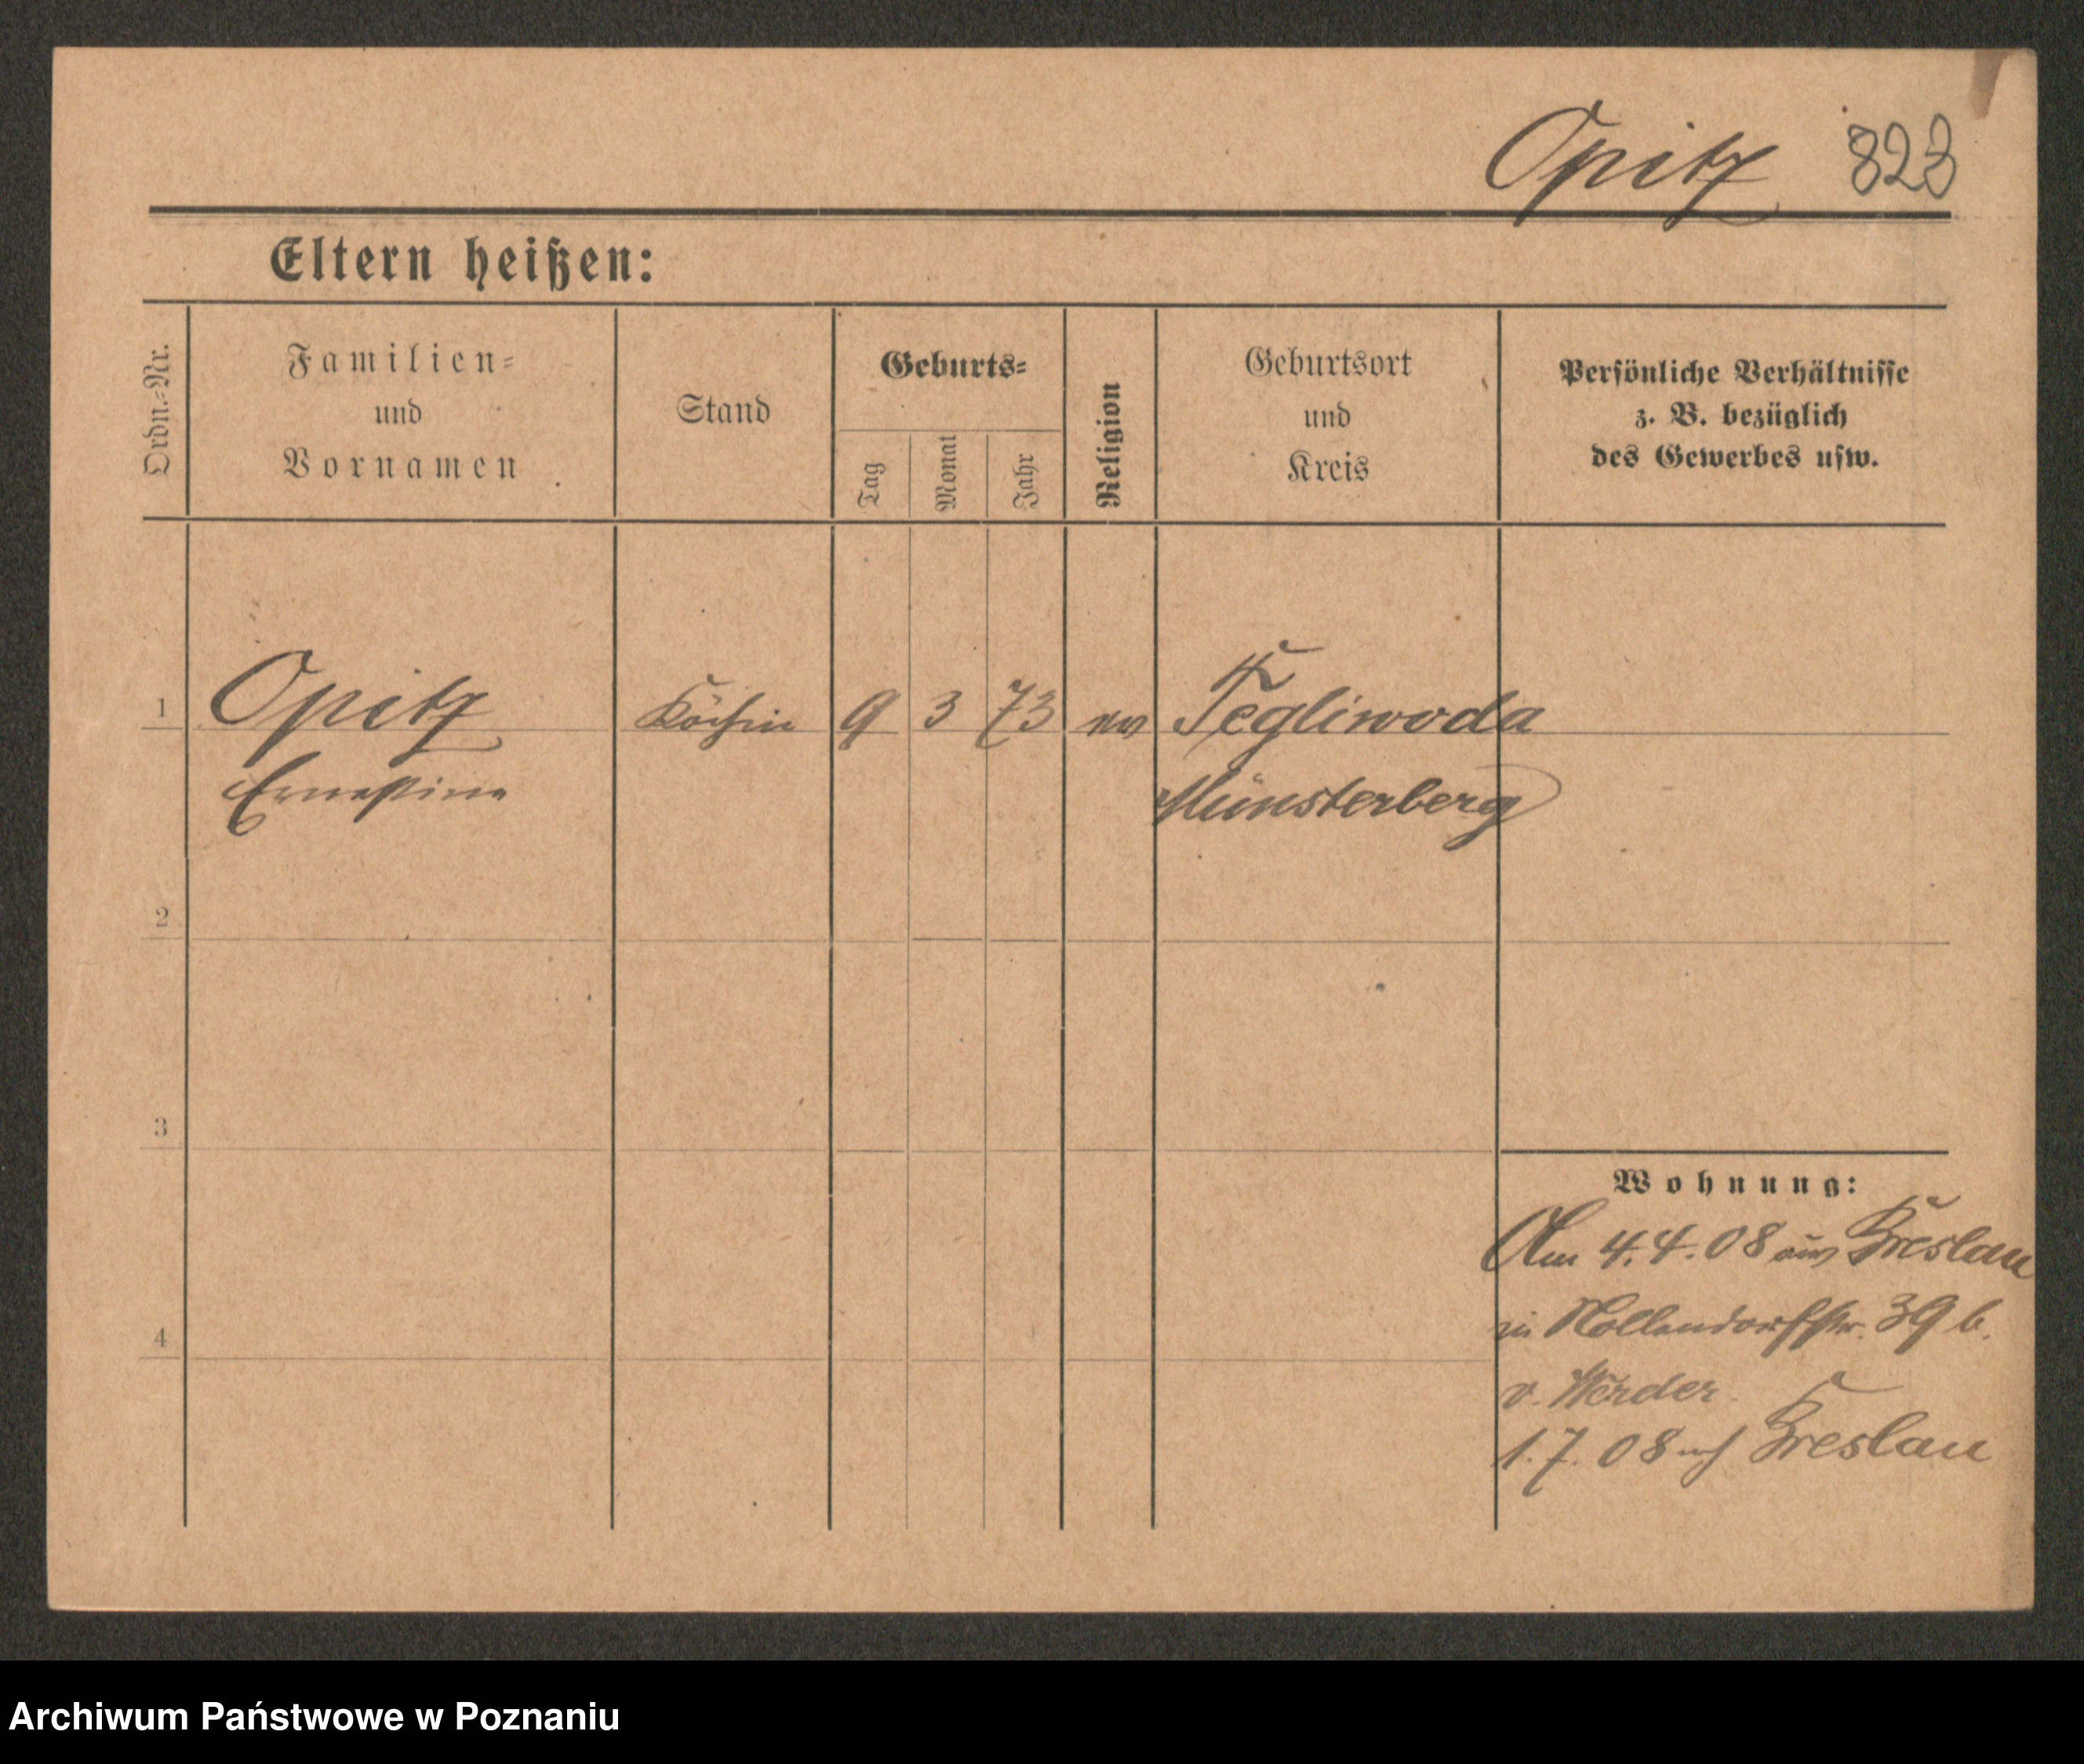 Opitz 823
Eltern heißen:
Ordn.-Nr.
Familien-
und
Vornamen
Stand
Geburts-
Tag
Monat
Jahr
Religion
Geburtsort
und
Kreis
Persönliche Verhältnisse
z. B. bezüglich
des Gewerbes usw.
1 Opitz Köchin 9 3 73 ev Tegliwoda
Ernestine Münsterberg
2
3
Wohnung:
Am 4.4.08 aus Breslau
in Nollendorfstr. 39 b.
4
v. Werder.
1.7.08 nach Breslau
Archiwum Państwowe w Poznaniu